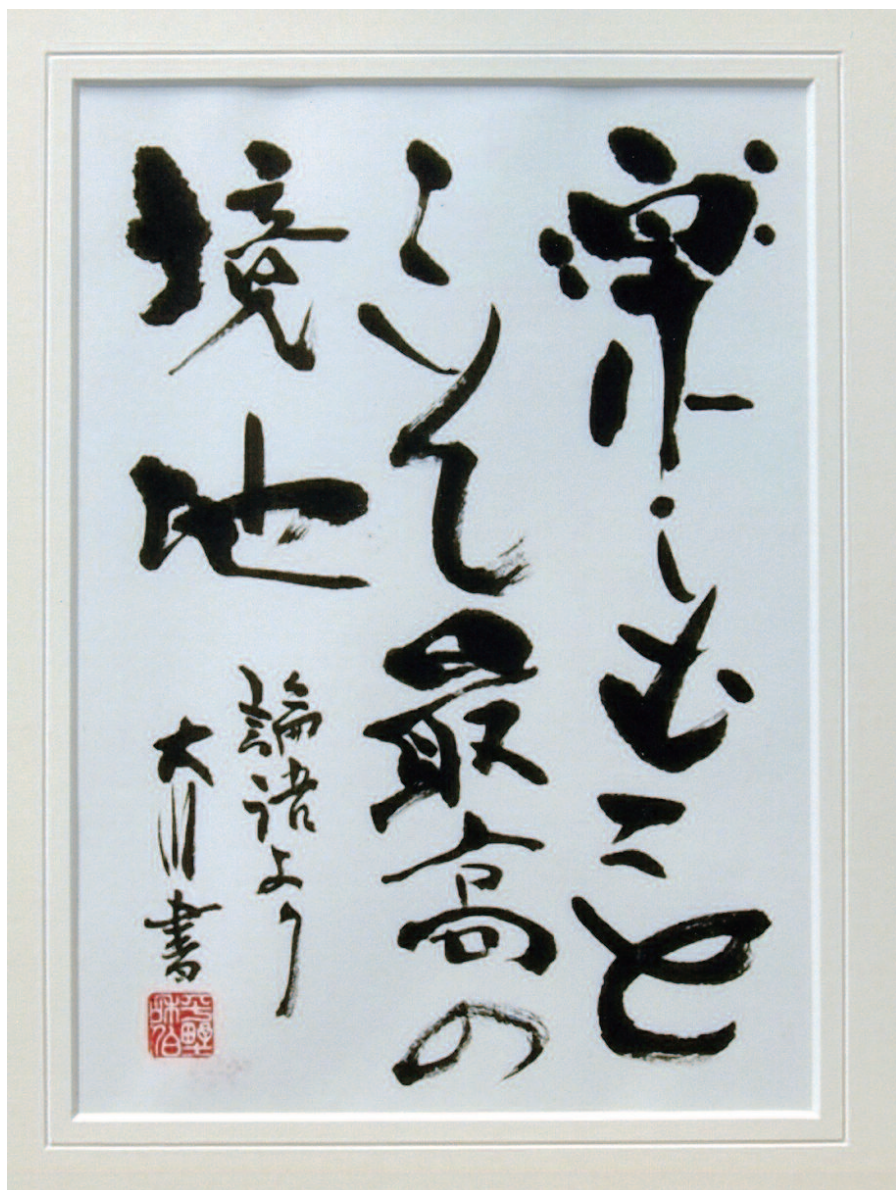 楽しむこと
こそ最高の
境地
論語より
大川書